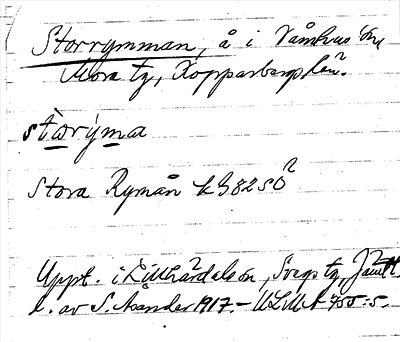 Storrymman, å i Våmhus sn,
Mora tg, Kopparbergs län.
stàrýma
Stora Rymån kb 82 SO
Uppt. i Lillhärdal sn, Svegs tg, Jämtl.
l. av S. Asander 1917. – ULMA 755: s.